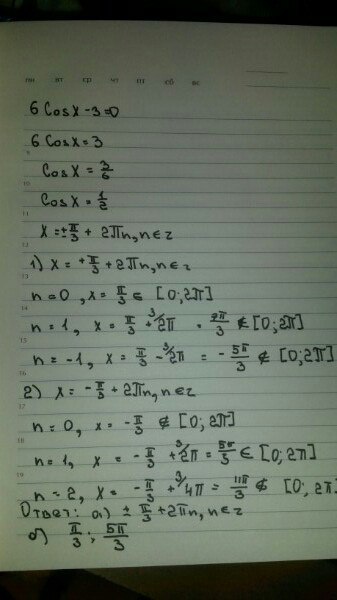 пн вт ср чт пт сб вс
6 Cosx - 3 = 0
6 Cosx = 3
9
Cosx = 3/6
10
Cosx = 1/2
11
x = ± π/3 + 2πn, n ∈ z
12
1) x = + π/3 + 2πn, n ∈ z
13
n = 0, x = π/3 ∈ [0; 2π]
14
n = 1, x = π/3 + ³/2π = 7π/3 ∉ [0; 2π]
15
n = -1, x = π/3 - ³/2π = - 5π/3 ∉ [0; 2π]
16
2) x = - π/3 + 2πn, n ∈ z
17
n = 0, x = - π/3 ∉ [0; 2π]
18
n = 1, x = - π/3 + ³/2π = 5π/3 ∈ [0; 2π]
19
n = 2, x = - π/3 + ³/4π = 11π/3 ∉ [0; 2π]
Ответ: а) ± π/3 + 2πn, n ∈ z
б) π/3 ; 5π/3